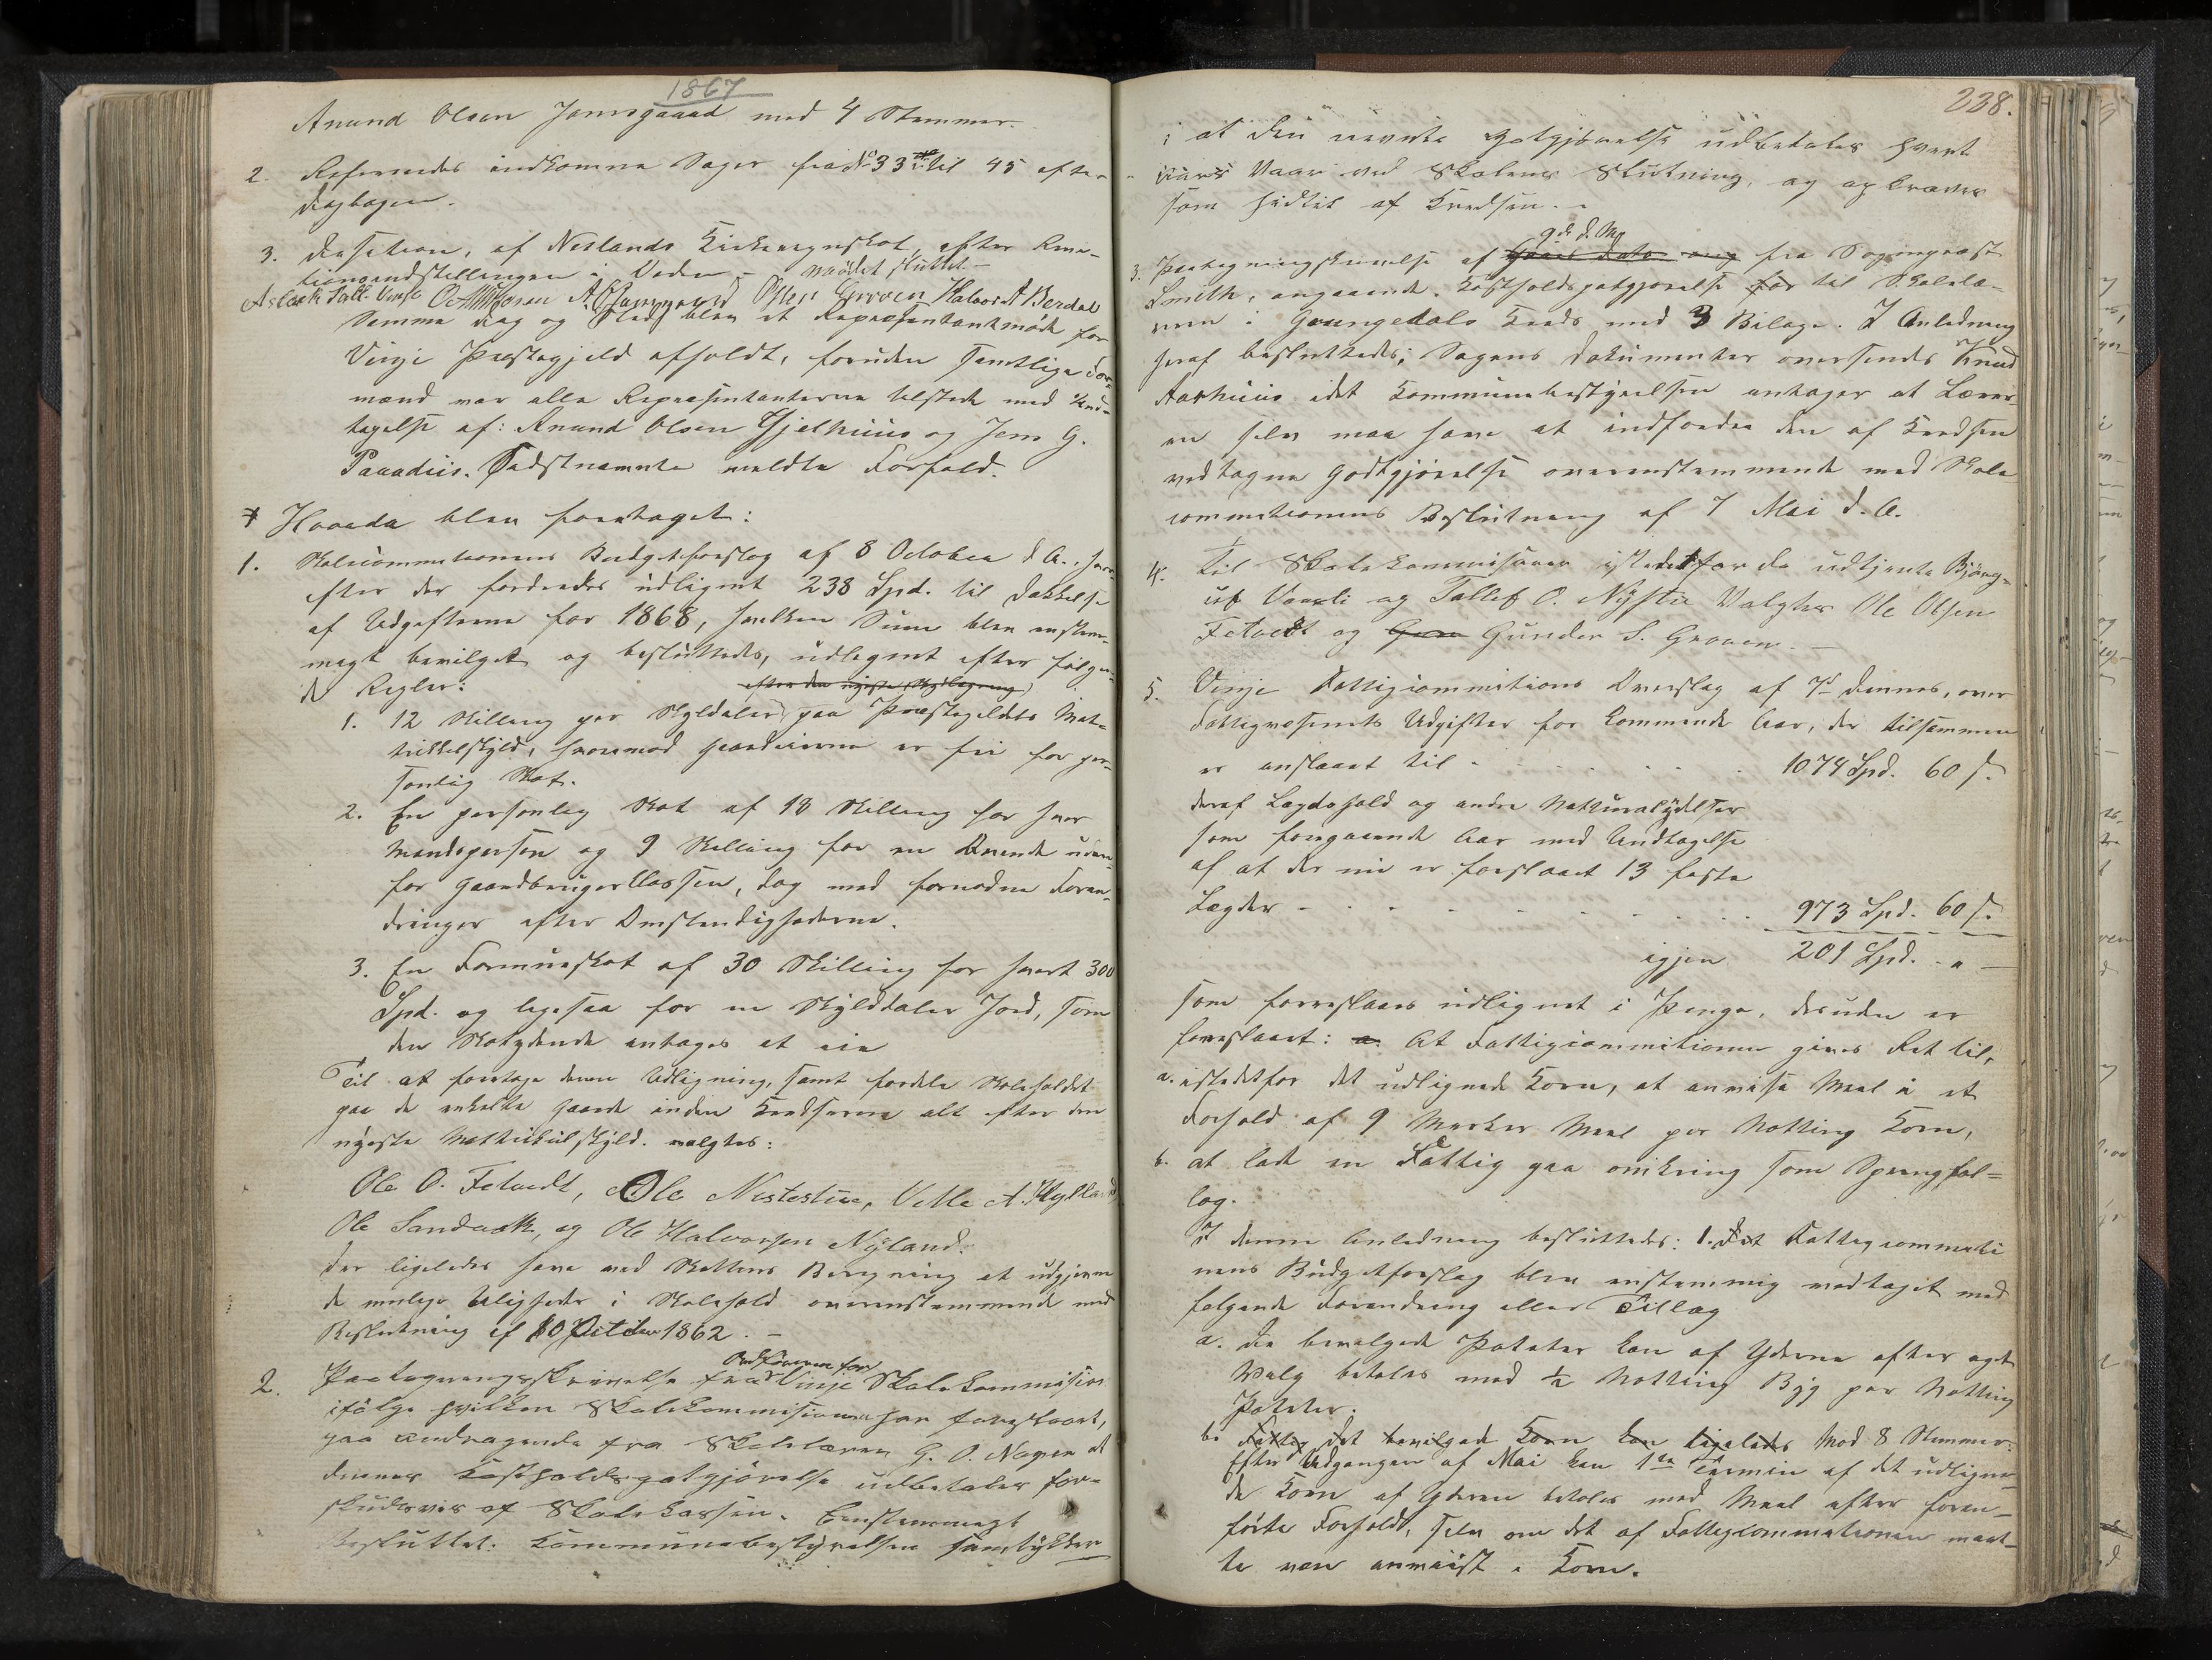 1867
Anund Olsen Jamsgaard med 4 Stemmer.
2. Refereredes indkomne Sager fra No 33 til 45 efter
Dagbogen.
3. af Neslands Kirkeregnskab, efter
i Orden. - mödet sluttet -
Aslak Tall. Vinje Halvor A Berdal
Samme Dag og Sted blev et Repræsentantmöde for
Vinje Præstegjeld afholdt, foruden samtlige For-
mænd var alle Repræsentanterne tilstede med Und-
tagelse af: Anund Olsen Gjelhuus og Jens G.
Paradiis. Sidstnævnte meldte Forfald.
Hvorda blev foretaget:
1. Skolecommitionens Budgetforslag af 8 October d. A., hvor-
efter der fordredes udlignet 238 Spd. til Dækkelse
af Udgifterne for 1868, hvilken Sum blev enstem-
migt bevilget og besluttedes, udlignet efter følgen-
de Regler:
efter den nyeste Skyldlægning
1. 12 Skilling per Skyldaler paa Præstegjeldets Mat-
trikkelskyld, hvorimod Gaardeierne er fri for per-
sonlig Skat.
2. En personlig Skat af 18 Skilling for hver
Mandsperson og 9 Skilling for en Qvinde uden-
for Gaardbrugerklassen, dog med fornødne Foran-
dringer efter Omstændighederne.
3. En Formueskat af 30 Skilling for hvert 300
Spd. og ligesaa for en Skylddaler Jord, som
den Skatydende antages at eie
Til at foretage denne Udligning, samt fordele Skoleholdet
paa de enkelte Gaarde inden Kredserne alt efter den
nyeste Mattrikulskyld. valgtes:
Ole O. Fetvedt, Ole Nistestue, Vetle A. Hylland
Ole Sandvok, og Ole Halvorsen Nyland.
der ligeledes have ved Skattens Beregning at udjevne
de mulige Uligheder i Skolehold overensstemmende med
Beslutning af 10 October 1862. -
Ordföreren for
2. Paategningsskrivelse fra Vinje Skolekommision
ifölge hvilken Skolekommisionen har foreslaaet,
paa Andragende fra Skolelærer G. O. Nagen at
dennes Kostholdsgotgjörelse udbetales for-
skudsvis af Skolekassen. Eenstemmigt
Besluttet: Kommunebestyrelsen samtykker
228.
i at den nævnte Gotgjörelse udbetales hvert
Aars Vaar ved Skolens Slutning, og opkræves
som hidtil af Kredsen. -
9de d. M.
3. Paategningsskrivelse af fra Sogneprest
Smith, angaaende Kostholdsgotgjørelse for til Skolelæ-
reren i Grungedals Kreds med 3 Bilage. I Anledning
heraf besluttedes; Sagens Dokumenter oversendes Knud
Aarhuus idet Kommunebestyrelsen antager at Lærer-
en selv maa have at indfordre den af Kredsen
vedtagne Godtgjörelse overensstemmende med Skole
commitionens Beslutning af 7 Mai d. A.
4. Til Skolekommisærer istedetfor de udtjente Björg-
ulf Vaali og Tallef O. Nystu Valgtes Ole Olsen
Fetvedt og Gunder S. Groven. -
5. Vinje Fattigcommitions Overslag af 7d dennes, over
Fattigvæsenets Udgifter for kommende Aar, der tilsammen
er anslaaet til - 1074 Spd. 60 s.
deraf Lægdehold og andre Natturalydelser
som foregaaende Aar med Undtagelse
af at der nu er foreslaaet 13 faste
Lægder - 973 Spd. 60 s.
igjen 201 Spd. - " -
som foreslaaes udlignet i Penge, desuden er
foreslaaet: a. At Fattigcommitionen gives Ret til,
a. istedetfor det udlignede Korn, at anvise Meel i et
Forhold af 9 Marker Meel per Notting Korn,
b. at lade en Fattig gaa omkring som Sprengfal-
log.
I denne Anledning besluttedes: 1. Det Fattigcommiti
onens Budgetforslag blev enstemmig vedtaget med
følgende Forandring eller Tillæg
a. De bevilgede Poteter kan af Yderne efter eget
Valg betales med ½ Notting Byg per Notting
Poteter.
b. Fattig det bevilgede Korn kan ligeledes Mod 8 Stemmer:
Efter Udgangen af Mai kan 1ste Termin af det udligne-
de Korn af Yderen betales med Meel efter foran-
førte Forhold, selv om det af Fattigcommitionen maat-
te være anviist i Korn.